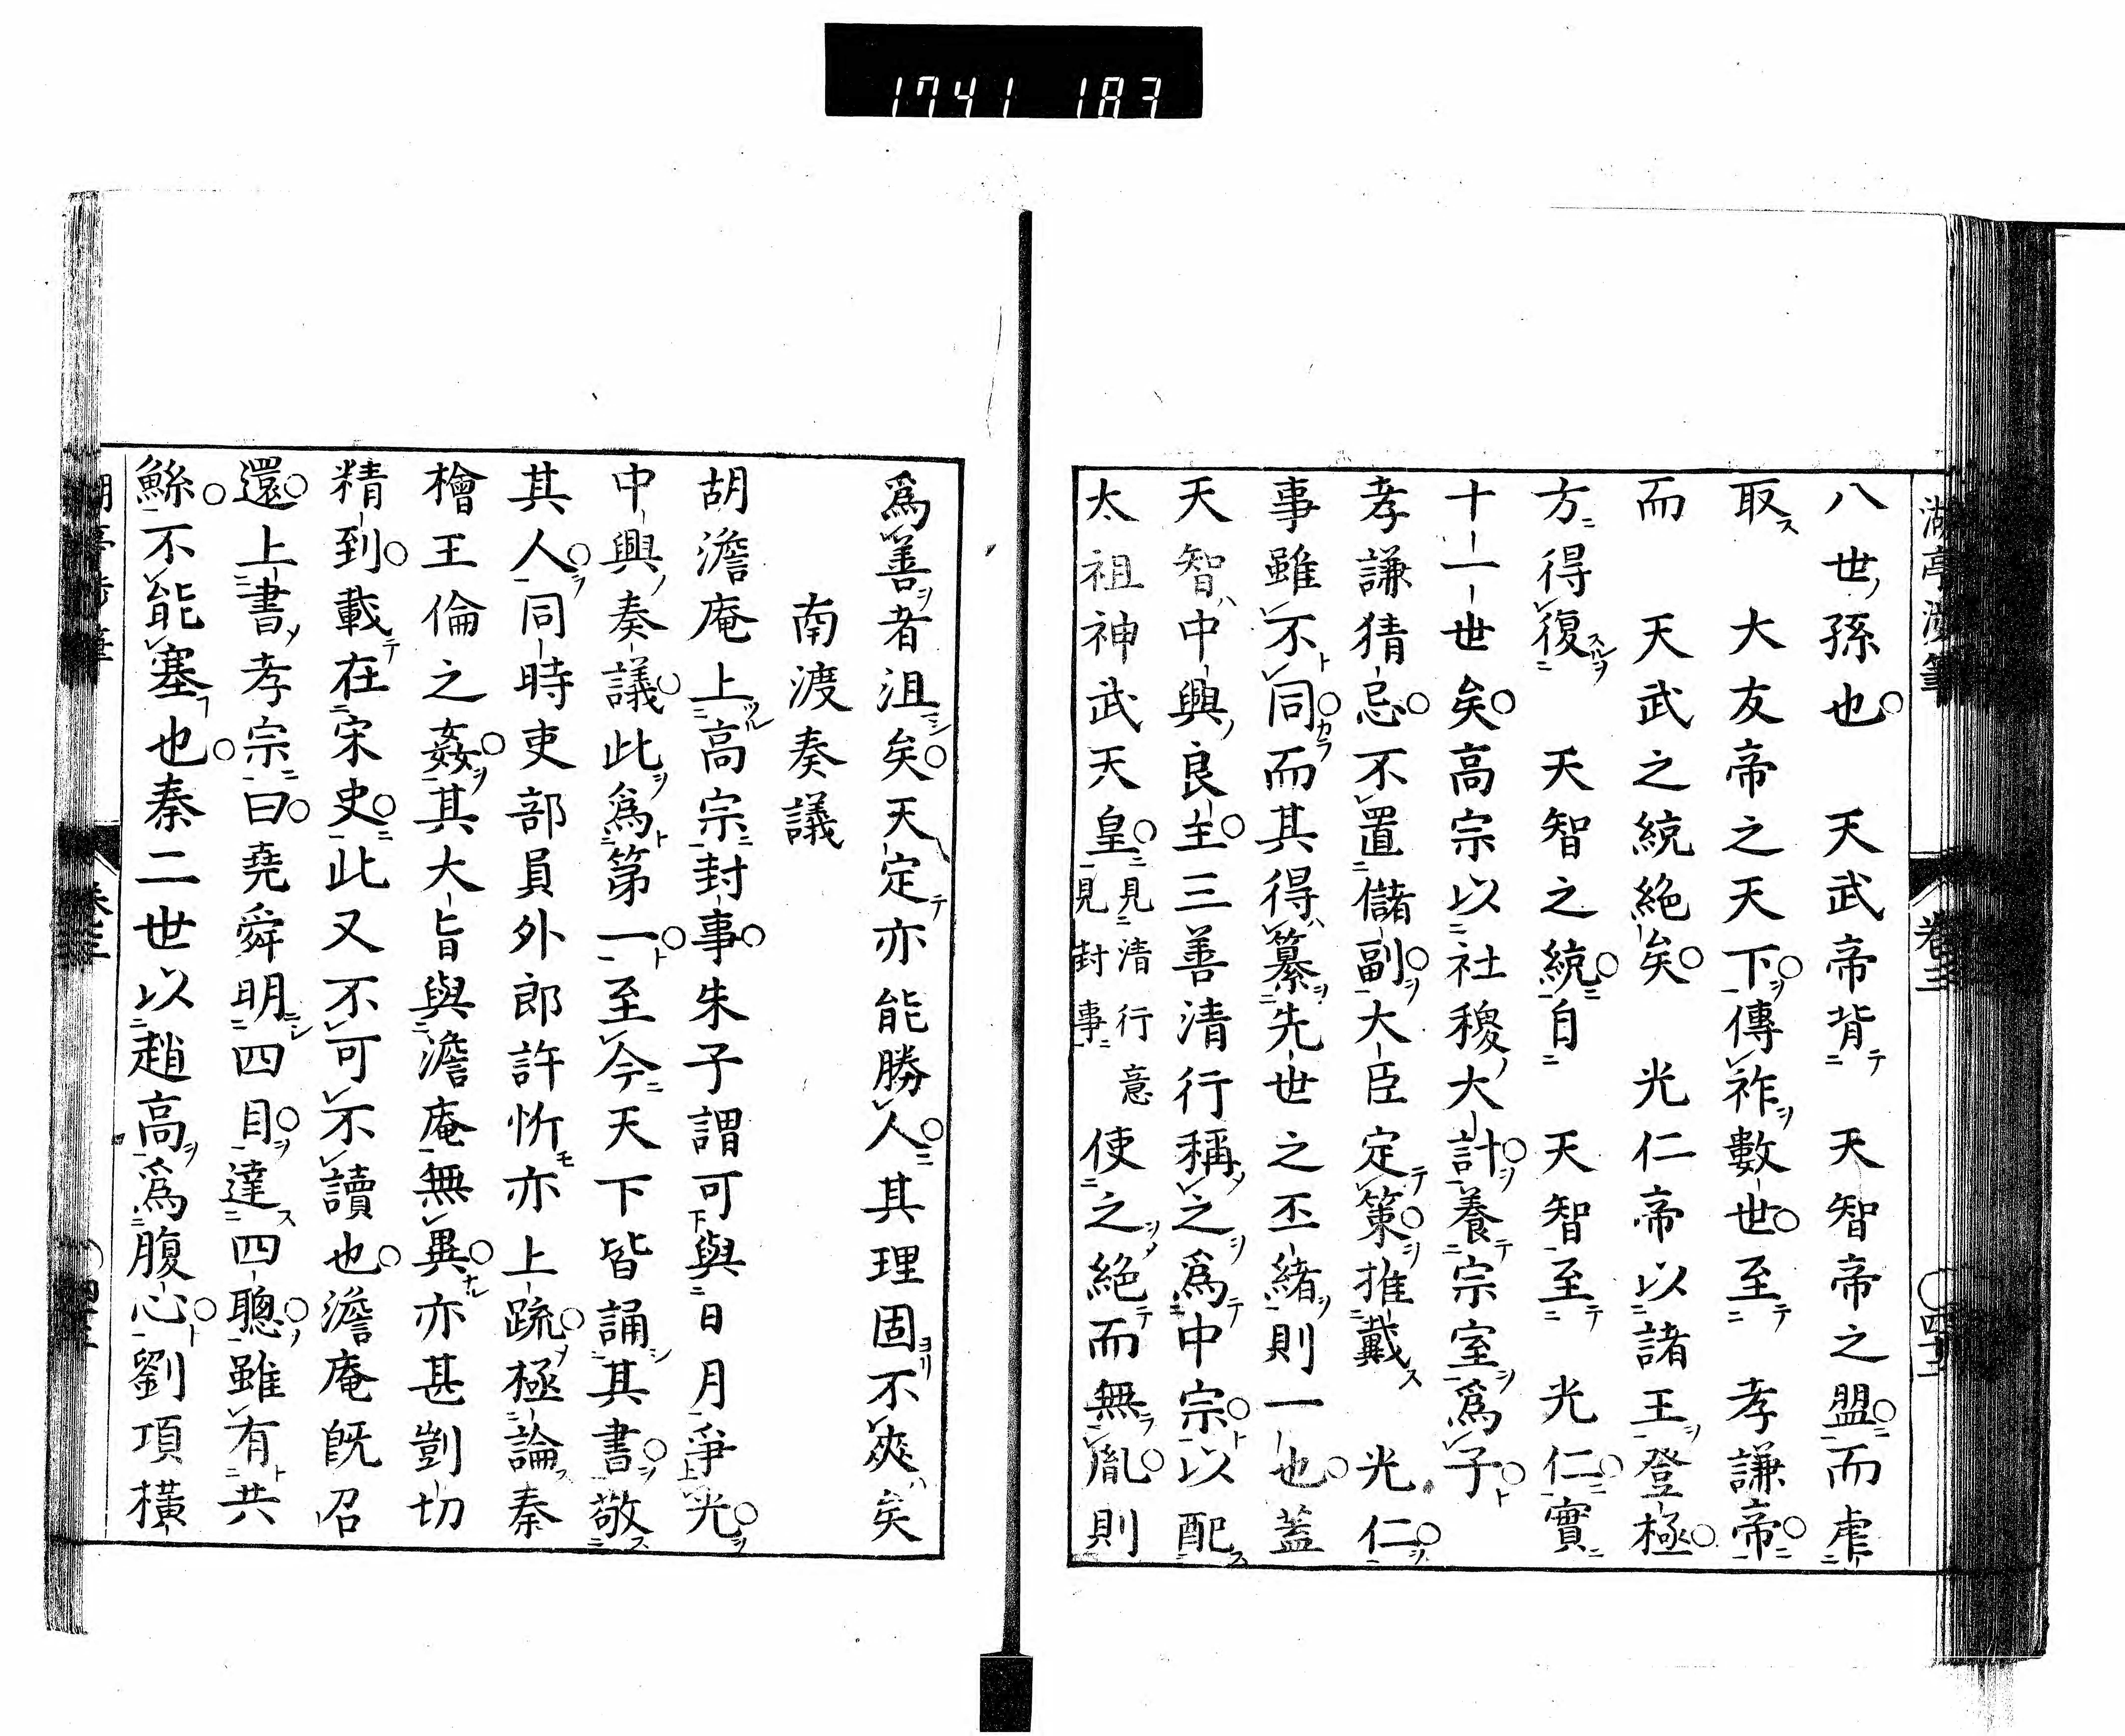 1741 183
八世孫也　天武帝背　天智帝之盟而虐
取　大友帝之天下傳祚數世至　孝謙帝
而　天武之統絶矣　光仁帝以諸王登極
方得復　天智之統自　天智至　光仁實
十一世矣高宗以社稷大計養宗室爲子
孝謙猜忌不置儲副大臣定策推戴　光仁
事雖不同而其得纂先世之丕緒則一也蓋
天智中興良主三善清行稱之爲中宗以配
太祖神武天皇見清行意見封事使之絶而無胤則
爲善者沮矣天定亦能勝人其理固不爽矣
南渡奏議
胡澹庵上高宗封事朱子謂可與日月爭光
中興奏議此爲第一至今天下皆誦其書敬
其人同時吏部員外郎許忻亦上疏極論秦
檜王倫之姦其大旨與澹庵無異亦甚剴切
精到載在宋史此又不可不讀也澹庵既召
還上書孝宗曰堯舜明四目達四聰雖有共
鯀不能塞也秦二世以趙高爲腹心劉項橫